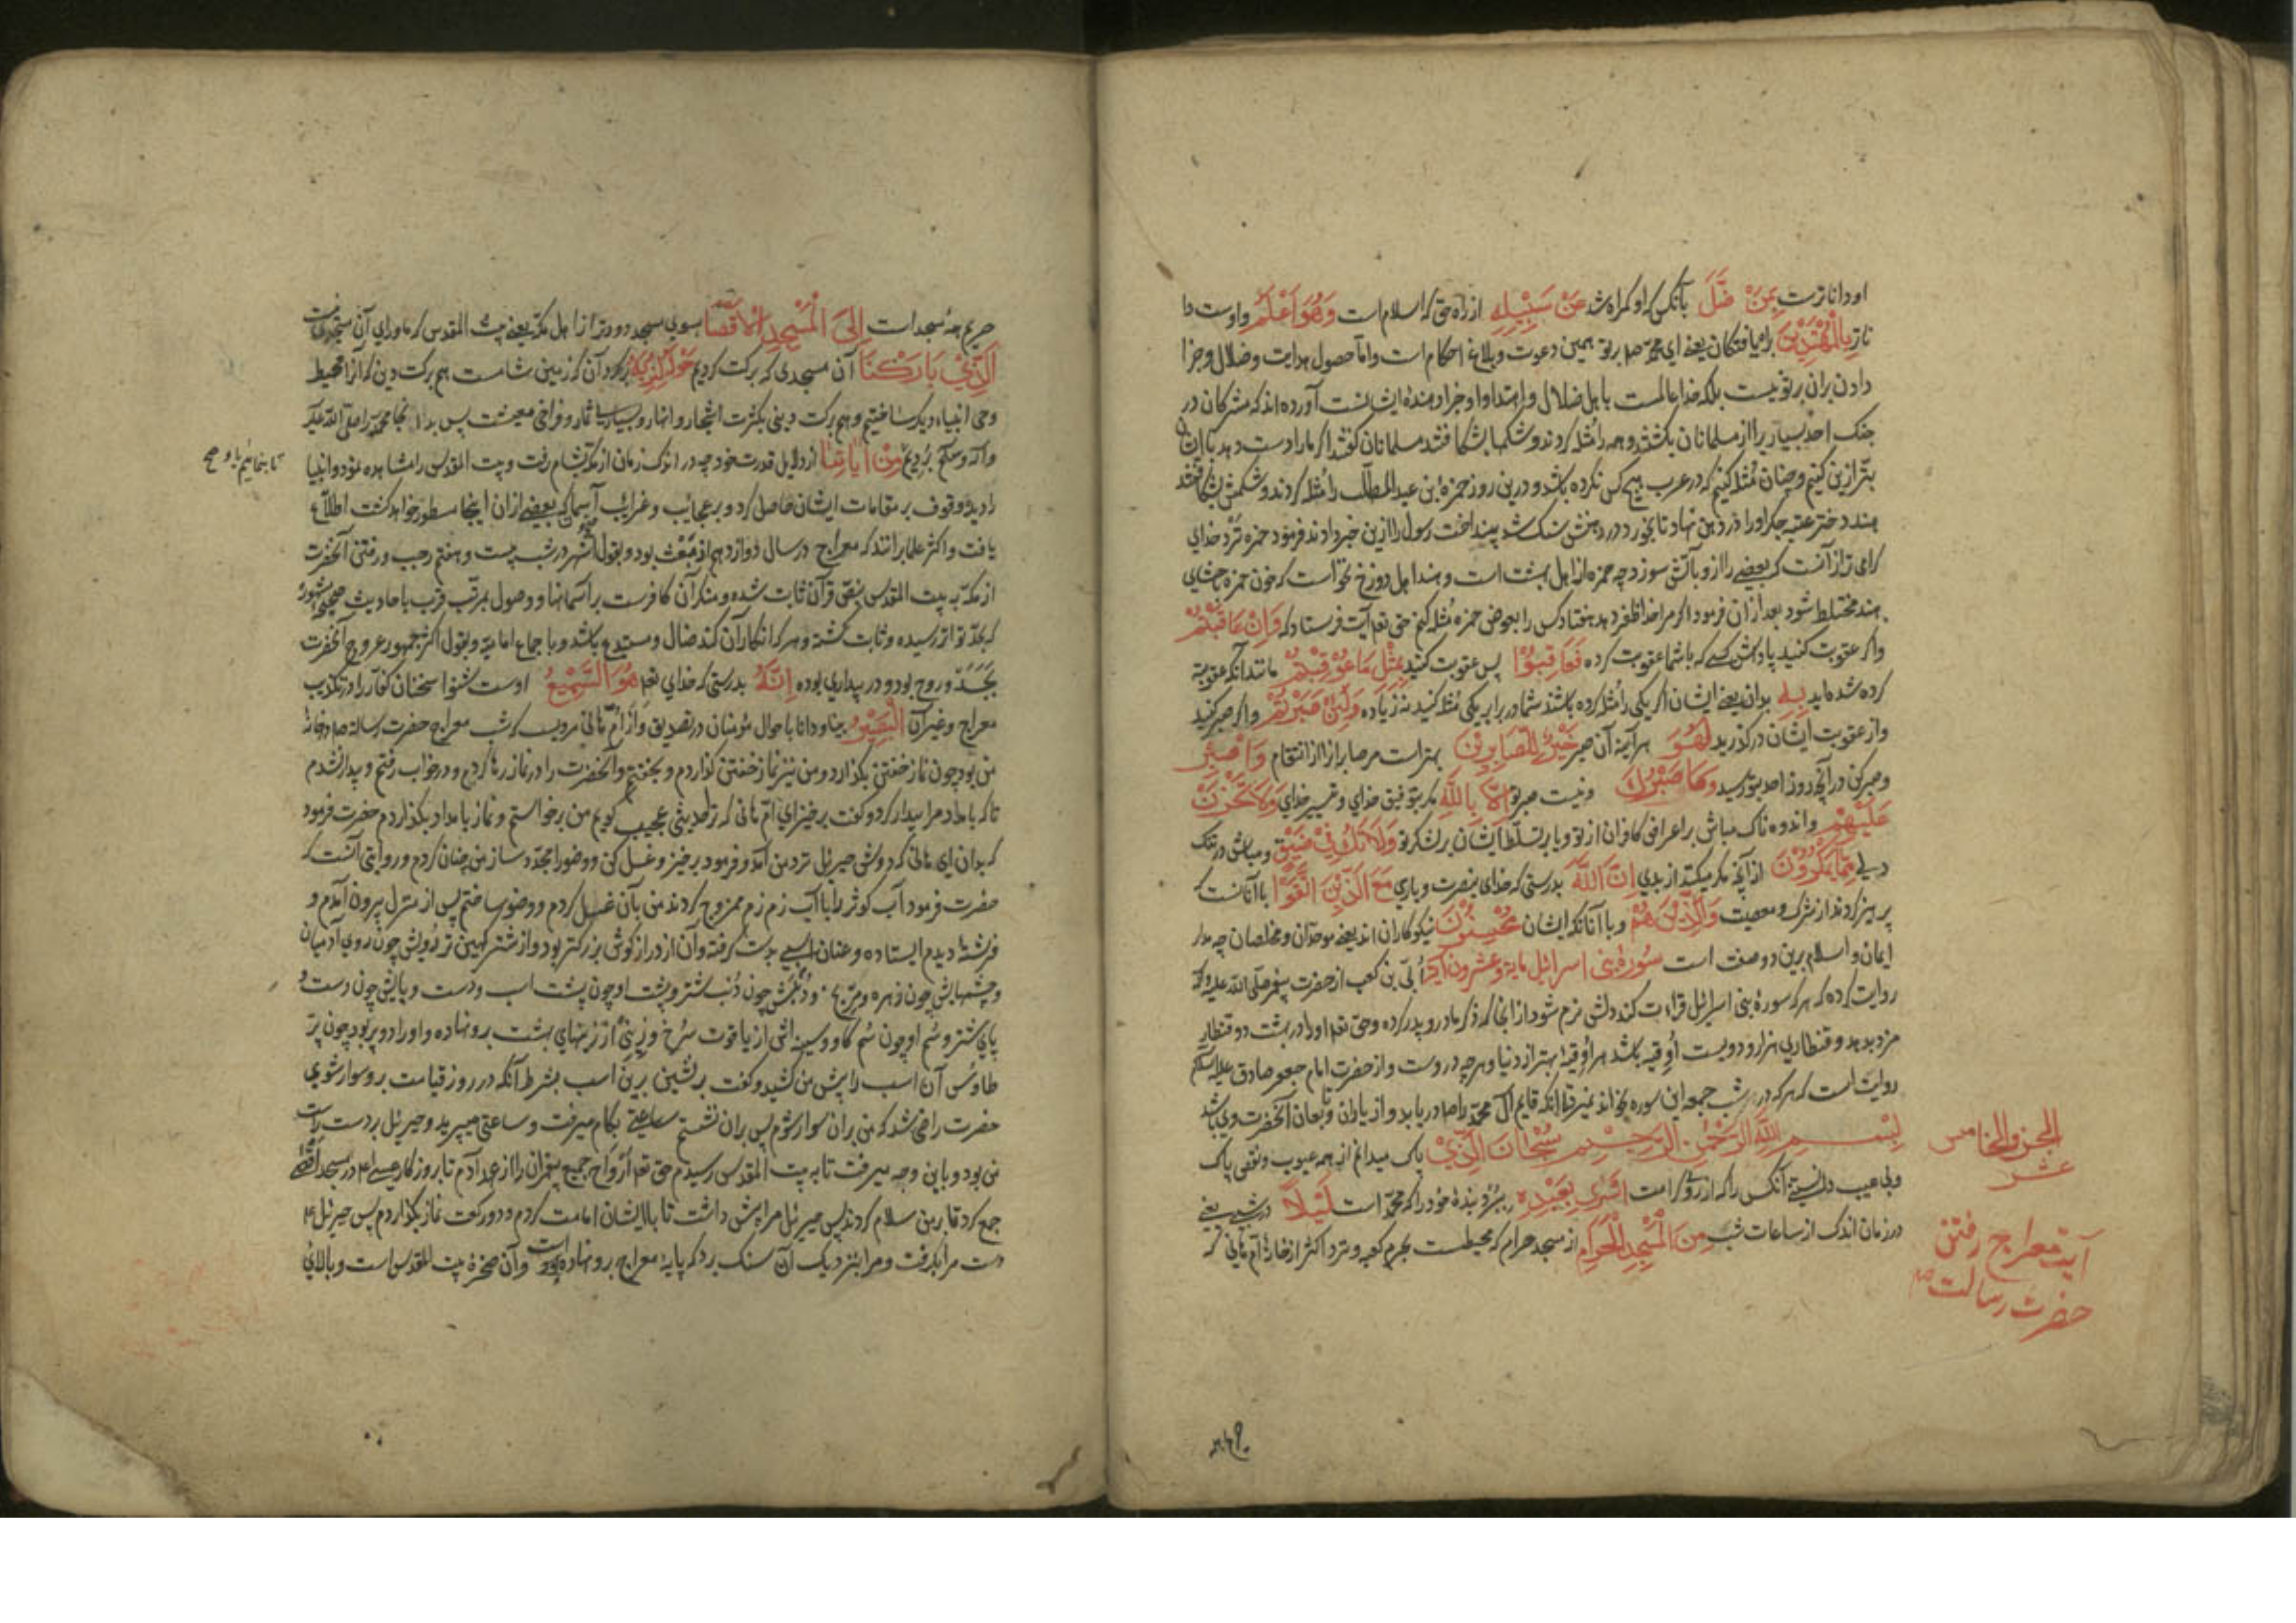 او داناترست بِمَنْ ضَلَّ بآنکس که او گمراه شد عَنْ سَبِیْلِهِ از راه حق که اسلام است وَهُوَ اَعْلَمُ و اوست دا
ناتر بِالْمُهْتَدِیْنَ براه یافتگان یعنی ای محمد صلم بر تو همین دعوت و بلاغ احکام است و اما حصول هدایت و ضلال و جزا
دادن بران بر تو نیست بلکه خدا عالمست باهل ضلال و اهتدا و او جزا دهندهٔ ایشانست آورده‌اند که مشرکان در
جنک احد بسیاریرا از مسلمانان بکشتند و همه را مُثله کردند و شکمها بشکافتند مسلمانان گفتند اگر ما را دست دهد با ایشان
بتر ازین کنیم و چنان مُثله کنیم که در عرب هیچ کس نکرده باشد و درین روز حمزه بن عبدالمطّلب را مُثله کردند و شکمش بشکافتند
هند دختر عتبه جگر او را در دهن نهاد تا بخورد در دهنش سنک شد بینداخت رسول را ازین خبر دادند فرمود حمزه نزد خدای
گرامی تر از آنست که بعضی را از و بآتش سوزد چه حمزه از اهل بهشت است و هند اهل دوزخ نخواست که خون حمزه بحشای
هند مختلط شود بعد از ان فرمود اگر مرا خدا ظفر دهد هفتاد کس را بعوض حمزه مُثله کنم حق تعم آیت فرستاد که وَاِنْ عَاقَبْتُمْ
و اگر عقوبت کنید پاداش کسی که با شما عقوبت کرده فَعَاقِبُوْا پس عقوبت کنید بِمِثْلِ مَا عُوْقِبْتُمْ مانند آنکه عقوبة
کرده شده‌اید بِهِ بدان یعنی ایشان اگر یکی را مُثله کرده باشند شما در برابر یکی مُثله کنید نه زیاده وَلَئِنْ صَبَرْتُمْ و اگر صبر کنید
و از عقوبت ایشان درگذرید لَهُوَ هر آینه آن صبر خَیْرٌ لِلصَّابِرِیْنَ بهتر است مر صابرانرا از انتقام وَاصْبِرْ
و صبر کن در آنچه روز احد بتو رسید وَمَا صَبْرُکَ و نیست صبر تو اِلَّا بِاللّٰهِ مگر بتوفیق خدای و تیسیر خدای وَلَا تَحْزَنْ
عَلَیْهِمْ و اندوه ناک مباش بر اعراض کافران از تو و یا بر تسلّط ایشان بر لشکر تو وَلَا تَکُ فِیْ ضَیْقٍ و مباش در تنک
دلی مِمَّا یَمْکُرُوْنَ از آنچه مکر میکنند از بدی اِنَّ اللّٰهَ بدرستی که خدای بنصرت و یاری مَعَ الَّذِیْنَ اتَّقَوْا با آنانست که
پرهیز کردند از شرک و معصیت وَالَّذِیْنَ هُمْ و با آنانکه ایشان مُحْسِنُوْنَ نیکوکاران اند یعنی موحدان و مخلصان چه مدار
ایمان و اسلام برین دو صفت است سُوْرَةُ بنی اسرائیل مایة و عشرون آیة اُبَیّ بن کعب از حضرت پیغمبر صلّی الله علیه وآله
روایت کرده که هر که سورهٔ بنی اسرائیل قراءت کند و دلش نرم شود از انجا که ذکر مادر و پدر کرده و حق تعم او را در بهشت دو قنطار
مزد بدهد و قنطاری هزار و دویست اُوقیه باشد هر اُوقیهٔ بهتر از دنیا و هر چه در وست و از حضرت امام جعفر صادق علیه السلم
روایت است که هر که در هر شب جمعه این سوره بخواند نمیرد تا آنکه قایم آل محمد را صلم دریابد و از یاران و تابعان آنحضرت وی باشد
بِسْمِ اللّٰهِ الرَّحْمٰنِ الرَّحِیْمِ سُبْحَانَ الَّذِیْ پاک میدانم از همه عیوب و نقص پاک
و بی عیب دانستنی آنکس را که از روی کرامت اَسْرٰی بِعَبْدِهِ ببُرد بندهٔ خود را که محمد است لَیْلًا در شبی یعنی
در زمان اندک از ساعات شب مِنَ الْمَسْجِدِ الْحَرَامِ از مسجد حرام که محیطست بحرم کعبه و نزد اکثر از خانهٔ ام هانی که
الجزو الخامس
عشر
آیة معراج رفتن
حضرت رسالت صم
حریم همه مسجد است اِلَی الْمَسْجِدِ الْاَقْصَا بسوی مسجد دورتر از اهل مکه یعنی بیت المقدس که ماورای آن مسجدی نیست
اَلَّذِیْ بَارَکْنَا آن مسجدی که برکت کردیم حَوْلَهُ لِنُرِیَهُ گرد آن که زمین شامست هم برکت دین که آنرا محیط
وحی انبیاء دیگر ساختیم و هم برکت دینی بکثرت اشجار و انهار و بسیار ثمار و فراخی معیشت پس بدانجا محمد را صلّی الله علیه
وآله وسلم بردیم مِنْ اٰیَاتِنَا از دلایل قدرت خود چه در اندک زمان از مکه بشام رفت و بیت المقدس را مشاهده نمود و انبیا
را دیده وقوف بر مقامات ایشان حاصل کرد و بر عجایب و غرایب آسمان که بعضی از ان اینجا مسطور خواهد گشت اطلاع
یافت و اکثر علما برانند که معراج در سال دوازدهم از مَبعث بود و بقول اشهر در شب بیست و هفتم رجب و رفتن آنحضرت
از مکه به بیت المقدس بنصّ قرآن ثابت شده و منکر آن کافرست بر آسمانها و وصول بمرتبهٔ قرب باحادیث صحیحهٔ مشهوره
که بحدّ تواتر رسیده و ثابت گشته و هر که انکار آن کند ضال و مبتدع باشد و باجماع امامیه و بقول اکثر جمهور عروج آنحضرت
بجَسَد و روح بود و در بیداری بوده اِنَّهُ بدرستی که خدای تعم هُوَ السَّمِیْعُ اوست شنوا سخنان کفار را در تکذیب
معراج و غیر آن الْبَصِیْرُ بینا و دانا باحوال مؤمنان در تصدیق و از اُمّ هانی مرویست که شب معراج حضرت رسالة صم در خانهٔ
من بود چون نماز خفتن بگذارد و من نیز نماز خفتن گذاردم و بخفتم و آنحضرت را در نماز رها کردم و در خواب رفتم و بیدار نشدم
تا که بامداد مرا بیدار کرد و گفت برخیز ای امّ هانی که ترا حدیثی عجیب گویم من برخاستم و نماز بامداد بگذاردم حضرت فرمود
که بدان ای هانی که دوش جبرئیل نزد من آمد و فرمود برخیز و غسل کن و وضو را مجدّد ساز من چنان کردم و روایتی آنست که
حضرت فرمود آب کوثر را با آب زم زم ممزوج کردند من بآن غسل کردم و وضو ساختم پس از منزل بیرون آمدم و
فرشتهٔ دیدم ایستاده و عنان اسبی بدست گرفته و آن از دراز گوش بزرکتر بود و از شتر کهین تر رویش چون روی آدمیان
و چشمهایش چون زهره و مریخ و دُنبش چون دُنب شتر و پشت او چون پشت اسب و دست و پایش چون دست و
پای شتر و سُم او چون سُم گاو و سینه‌اش از یاقوت سُرخ و زینی از زینهای بهشت برو نهاده و او را دو پر بود چون پر
طاوُس آن اسب را پیش من کشید و گفت برنشین برین اسب بشرط آنکه در روز قیامت برو سوار شوی
حضرت راضی شد که من بران سوار شوم پس بران نشستم ساعتی بکام میرفت و ساعتی میپرید و جبرئیل بر دست راست
من بود و باین وجه میرفت تا به بیت المقدس رسیدم حق تعم ارواح جمیع پیغمبران را از عهد آدم تا بروزگار عیسی ع م در مسجد اقصی
جمع کرد تا بر من سلام کردند پس جبرئیل مرا پیش داشت تا با ایشان امامت کردم و دو رکعت نماز بگذاردم پس جبرئیل ع م
دست مرا بگرفت و مرا بنزدیک آن سنک برد که پایهٔ معراج برو نهاده است و آن صخرهٔ بیت المقدس است و بالای
تا بنمائیم باو صح